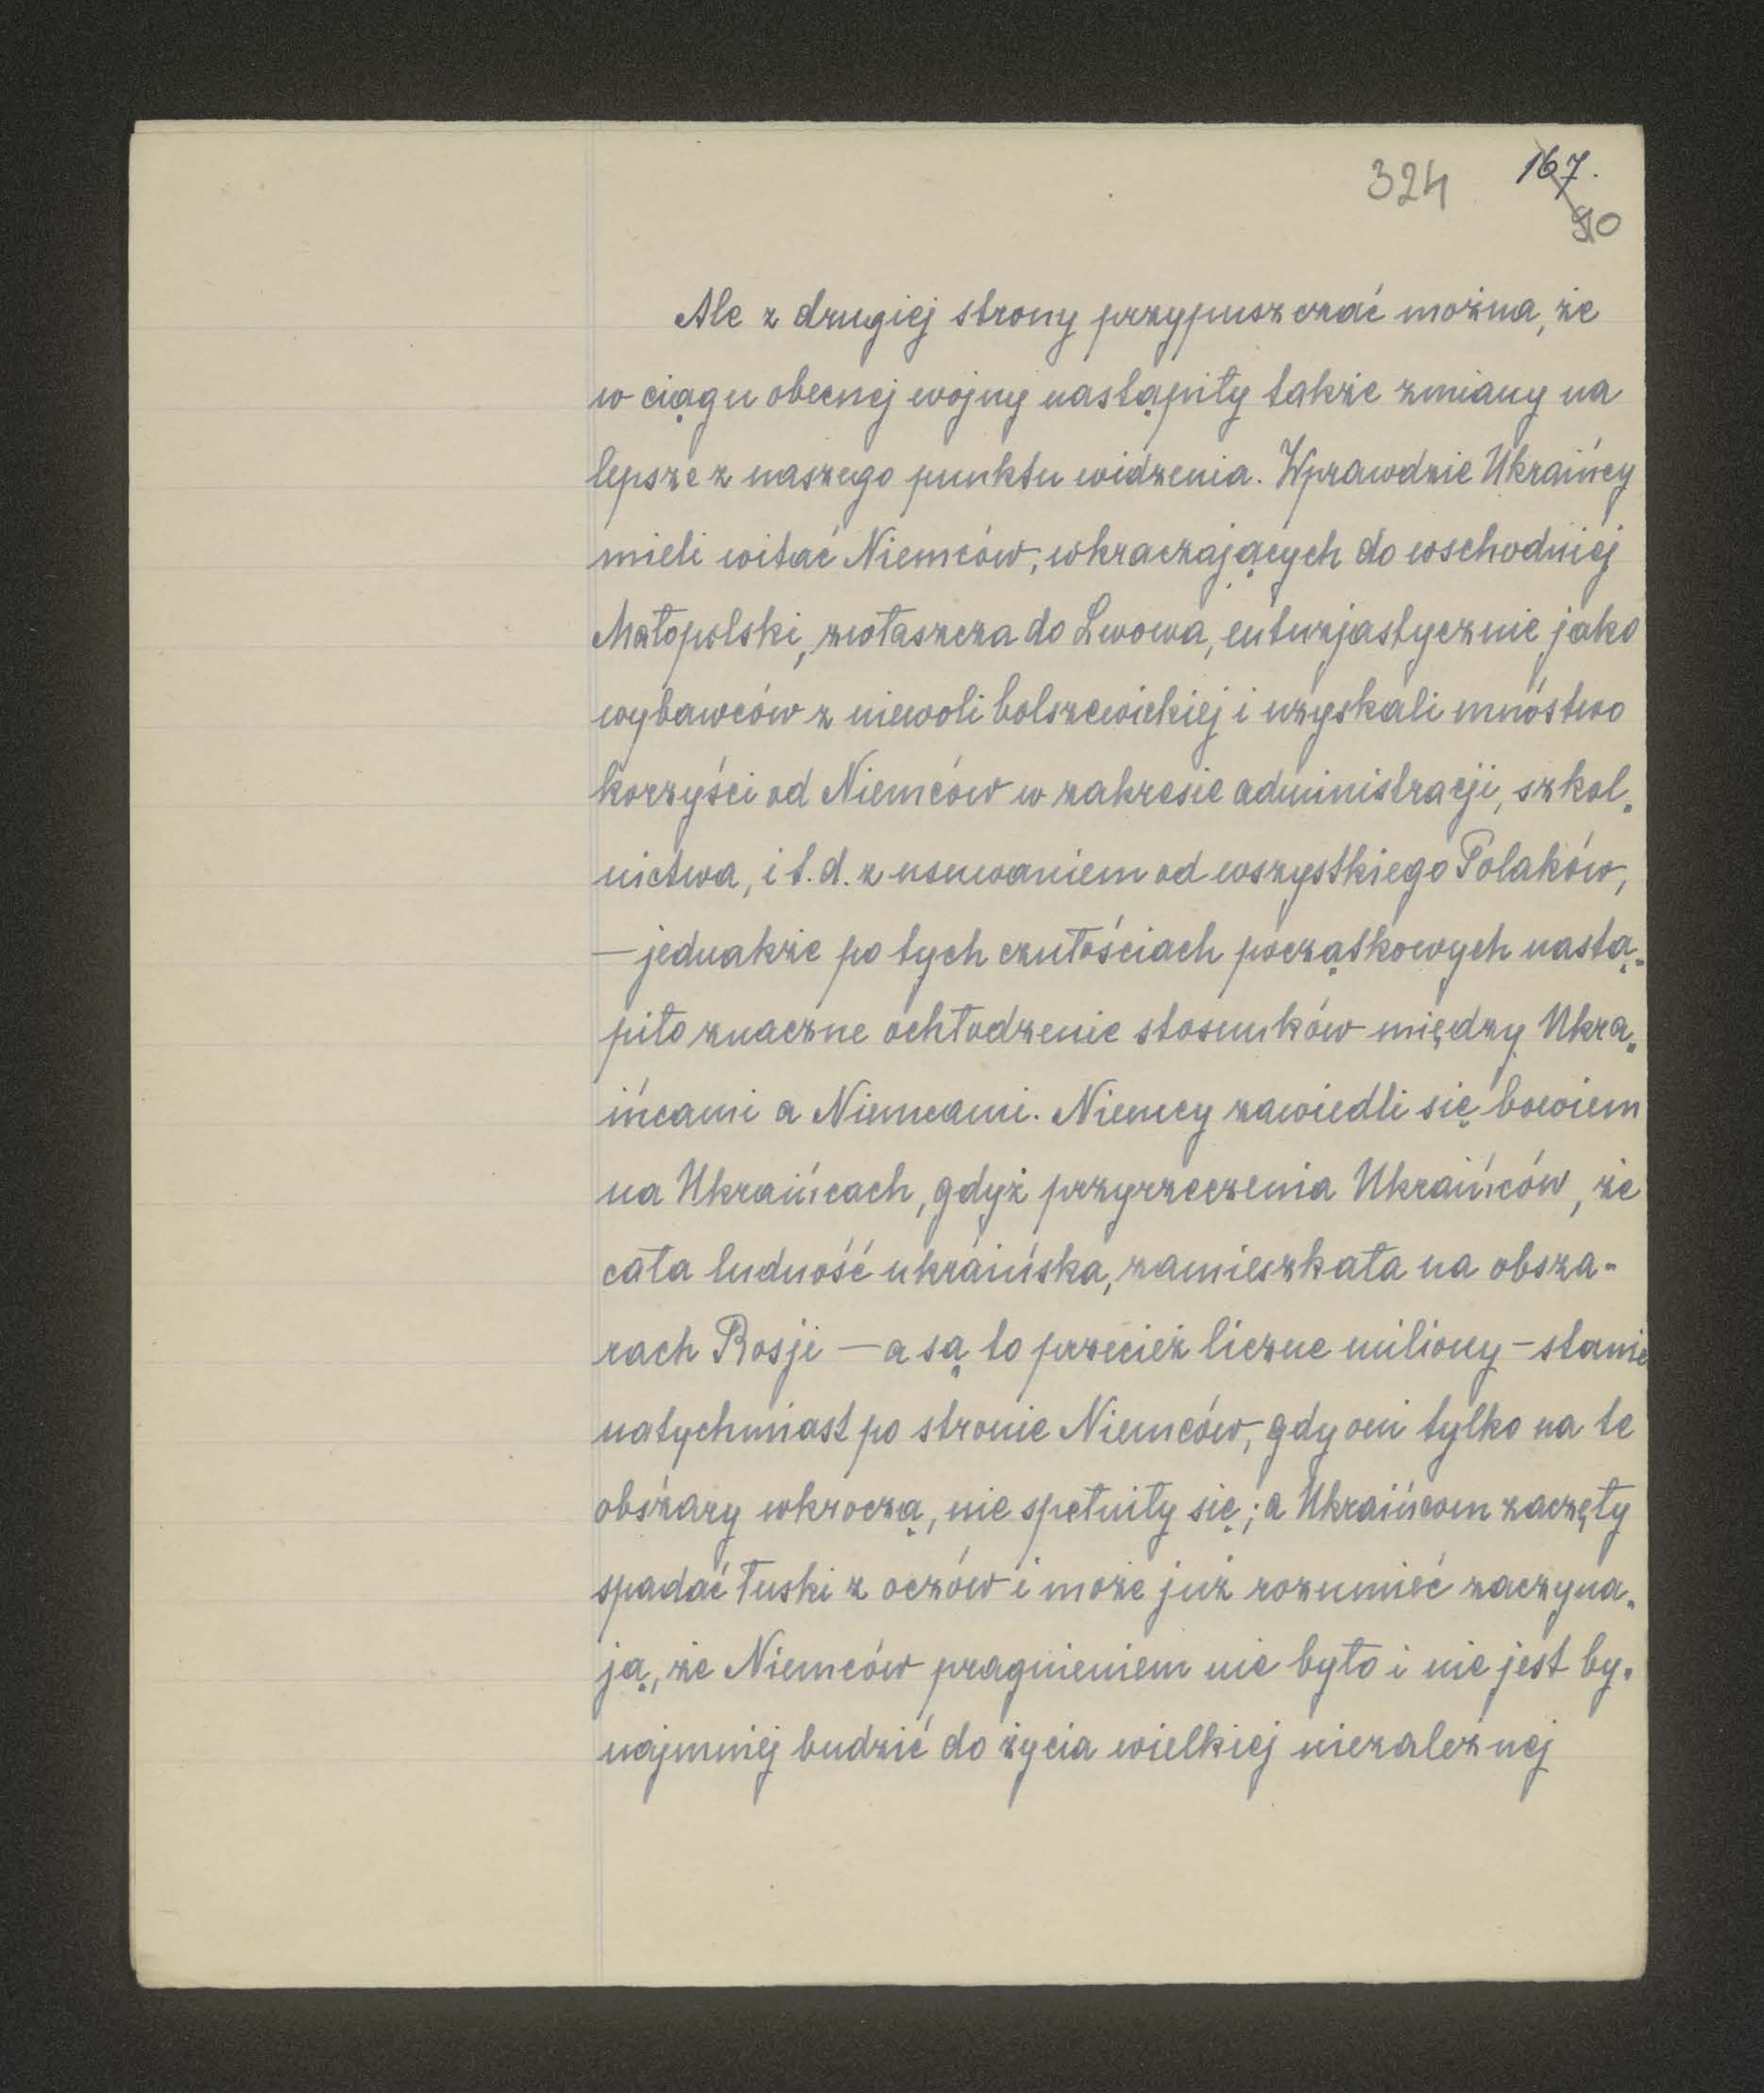 324 167.
510
Ale z drugiej strony przypuszczać można, że
w ciągu obecnej wojny nastąpiły także zmiany na
lepsze z naszego punktu widzenia. Wprawdzie Ukraińcy
mieli witać Niemców, wkraczających do wschodniej
Małopolski, zwłaszcza do Lwowa, entuzjastycznie jako
wybawców z niewoli bolszewickiej i uzyskali mnóstwo
korzyści od Niemców w zakresie administracji, szkol-
nictwa, i t. d. z usuwaniem od wszystkiego Polaków,
— jednakże po tych czułościach początkowych nastą-
piło znaczne ochłodzenie stosunków między Ukra-
ińcami a Niemcami. Niemcy zawiedli się bowiem
na Ukraińcach, gdyż przyrzeczenia Ukraińców, że
cała ludność ukraińska, zamieszkała na obsza-
rach Rosji — a są to przecież liczne miliony — stanie
natychmiast po stronie Niemców, gdy oni tylko na te
obszary wkroczą, nie spełniły się; a Ukraińcom zaczęły
spadać łuski z oczów i może już rozumieć zaczyna-
ją, że Niemców pragnieniem nie było i nie jest by-
najmniej budzić do życia wielkiej niezależnej